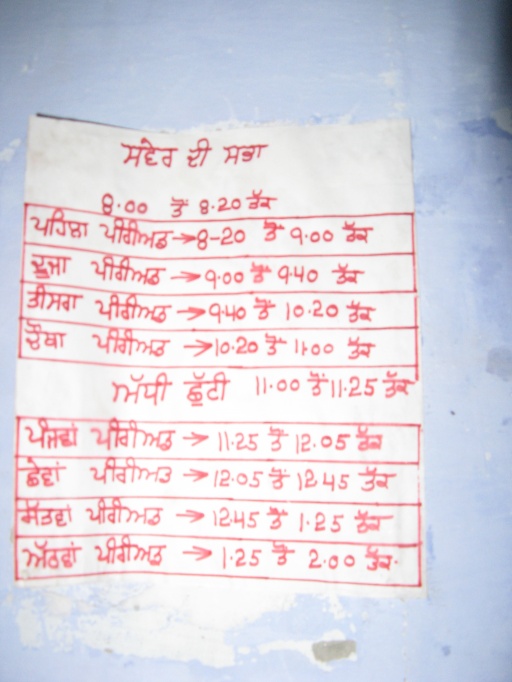 ਸਵੇਰ ਦੀ ਸਭਾ
8.00 ਤੋਂ 8.20 ਤੱਕ
ਪਹਿਲਾ ਪੀਰੀਅਡ → 8-20 ਤੋਂ 9.00 ਤੱਕ
ਦੂਜਾ ਪੀਰੀਅਡ → 9.00 ਤੋਂ 9.40 ਤੱਕ
ਤੀਸਰਾ ਪੀਰੀਅਡ → 9.40 ਤੋਂ 10.20 ਤੱਕ
ਚੌਥਾ ਪੀਰੀਅਡ → 10.20 ਤੋਂ 11.00 ਤੱਕ
ਅੱਧੀ ਛੁੱਟੀ 11.00 ਤੋਂ 11.25 ਤੱਕ
ਪੰਜਵਾਂ ਪੀਰੀਅਡ → 11.25 ਤੋਂ 12.05 ਤੱਕ
ਛੇਵਾਂ ਪੀਰੀਅਡ → 12.05 ਤੋਂ 12.45 ਤੱਕ
ਸੱਤਵਾਂ ਪੀਰੀਅਡ → 12.45 ਤੋਂ 1.25 ਤੱਕ
ਅੱਠਵਾਂ ਪੀਰੀਅਡ → 1.25 ਤੋਂ 2.00 ਤੱਕ.